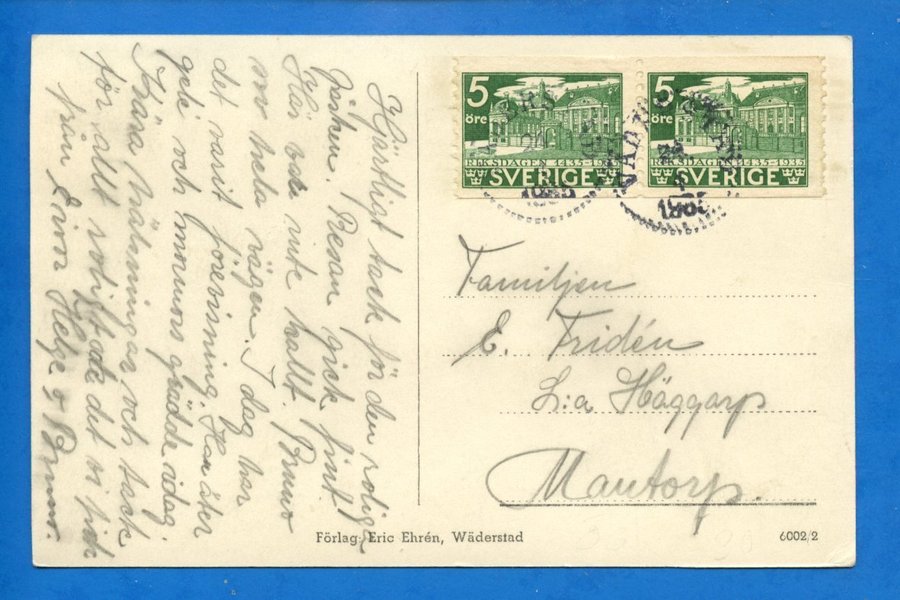 Hjärtligt tack för den roliga
julen. Resan gick fint
Här var inte kallt. Bruno
sov hela vägen. I dag har
det varit förevisning. Han äter
gele och mormors grädde idag.
Kära hälsningar och tack
för allt roligt det vi fick
från Elvin Helge o Bruno.
5 öre
RIKSDAGEN 1435-1935
SVERIGE
5 öre
RIKSDAGEN 1435-1935
SVERIGE
Familjen
E. Fridén
L:a Häggarp
Mantorp.
Förlag: Eric Ehrén, Wäderstad
6002/2